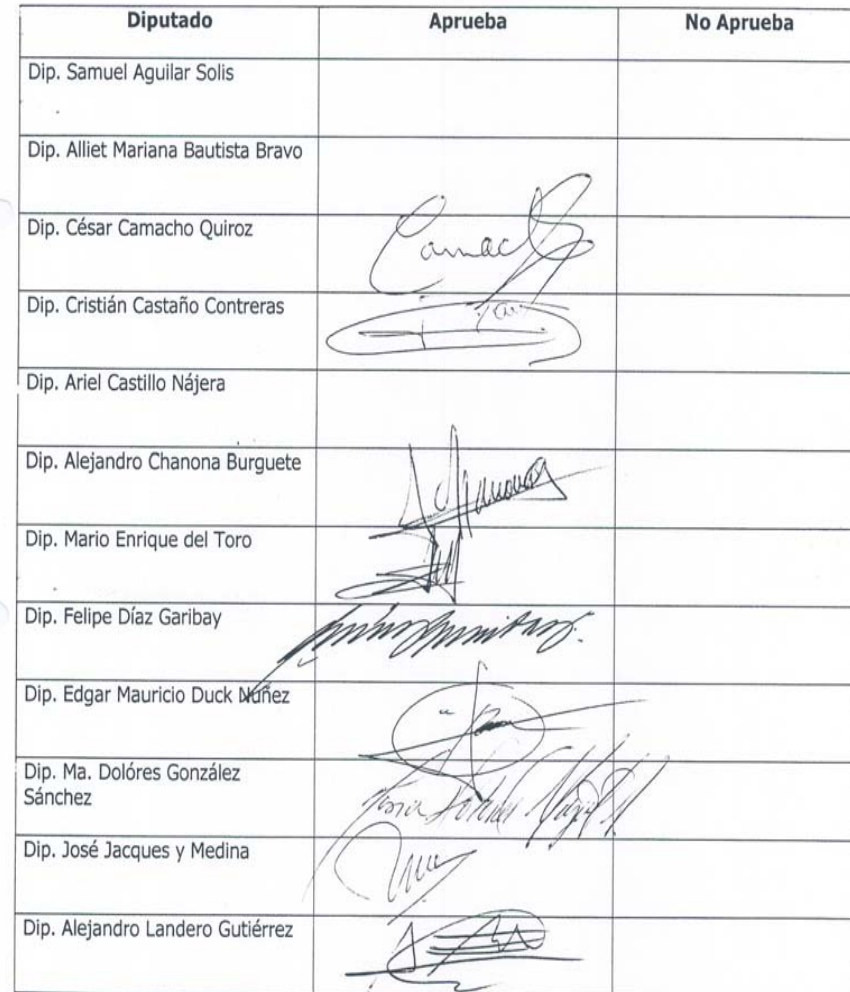 Diputado Aprueba No Aprueba
Dip. Samuel Aguilar Solis
Dip. Alliet Mariana Bautista Bravo
Dip. César Camacho Quiroz
Camach
Dip. Cristián Castaño Contreras
Dip. Ariel Castillo Nájera
Dip. Alejandro Chanona Burguete
Dip. Mario Enrique del Toro
Dip. Felipe Díaz Garibay
Dip. Edgar Mauricio Duck Nuñez
Dip. Ma. Dolóres González
Sánchez
Dip. José Jacques y Medina
Dip. Alejandro Landero Gutiérrez